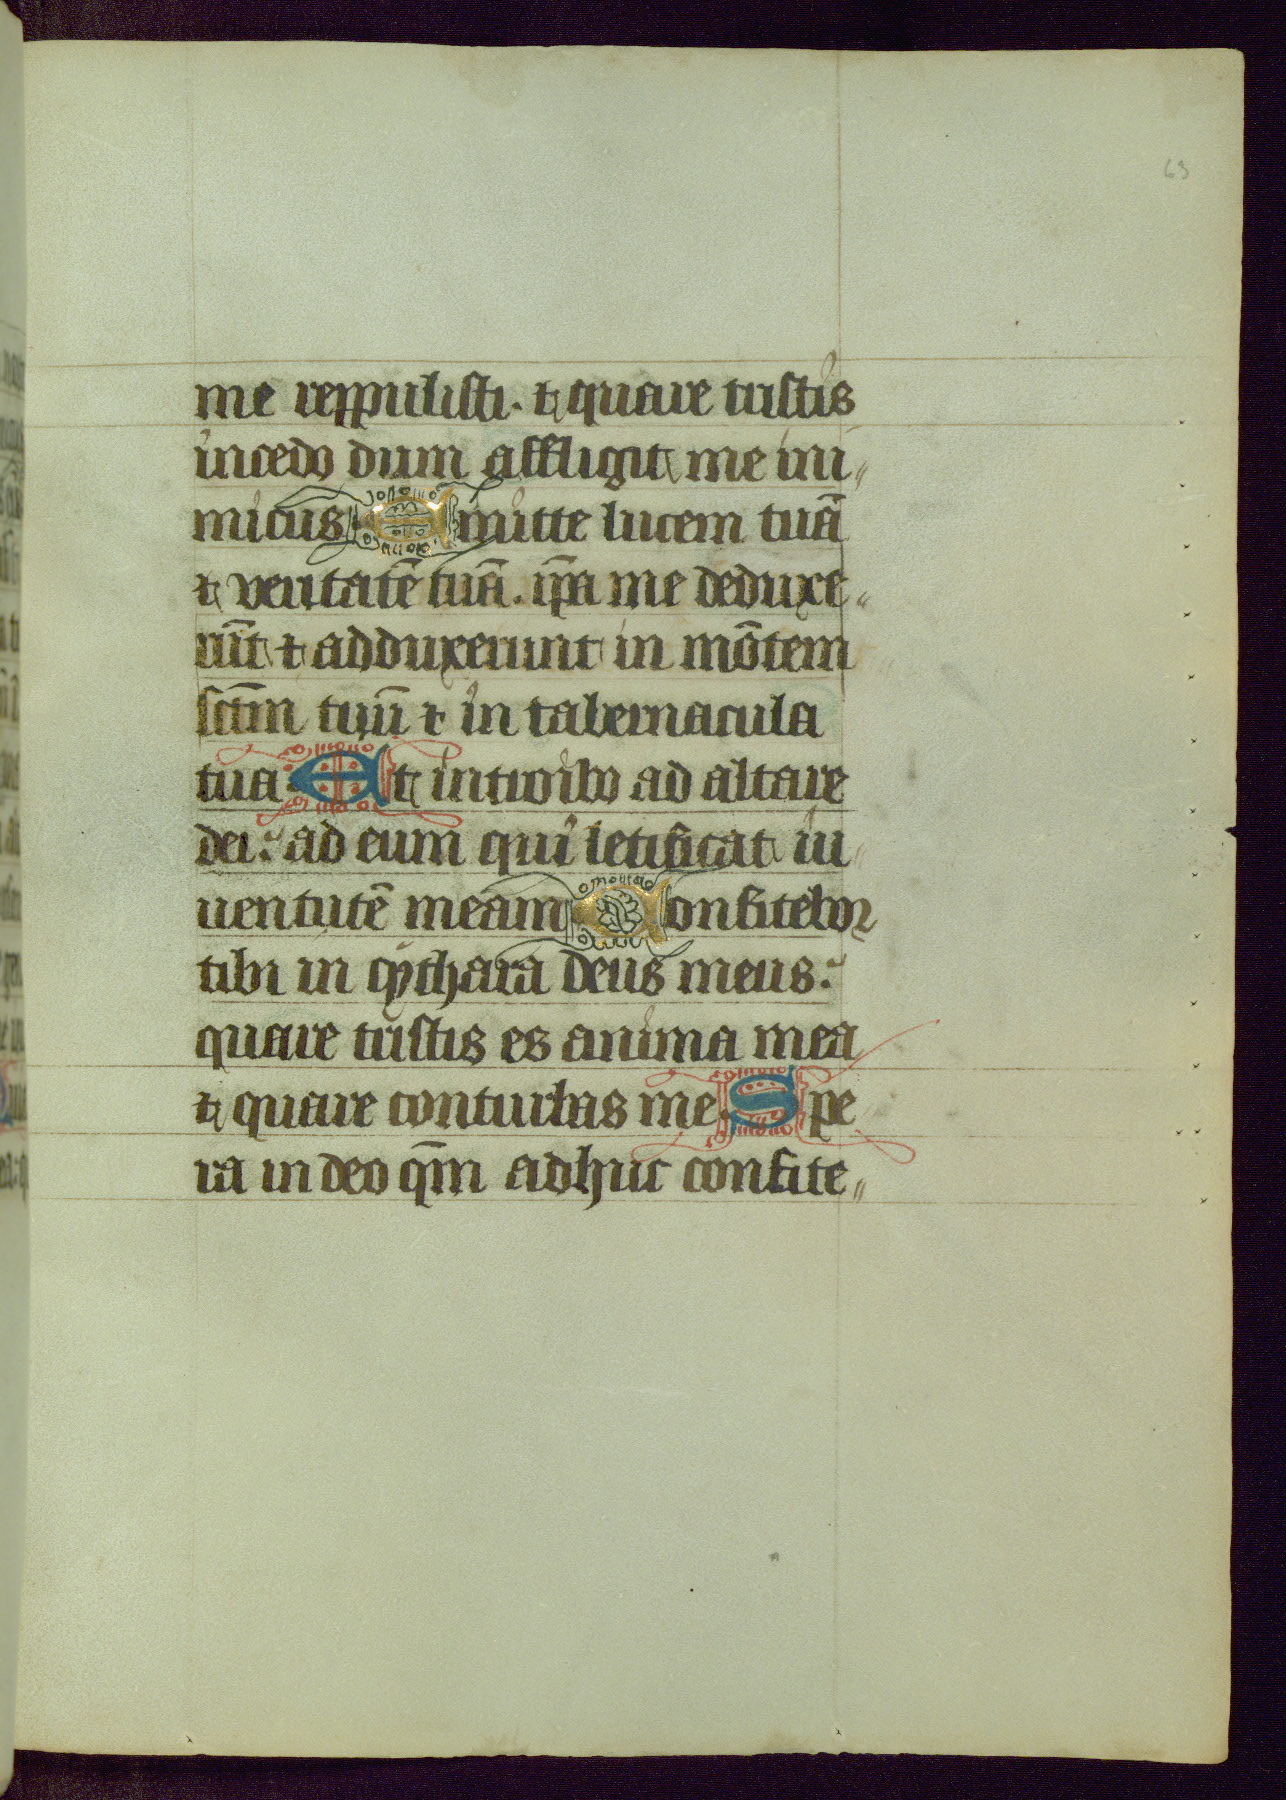 63
me reppulisti. ⁊ quare tristis
incedo dum affligit me ini〃
micus Emitte lucem tuā
⁊ veritatē tuā. ip̄a me deduxe〃
rūt ⁊ adduxerunt in mōtem
sc̄tm tuū ⁊ in tabernacula
tua Et introibo ad altare
dei: ad eum qui letificat iu〃
uentutē meam Confitebor
tibi in cythara deus meus:
quare tristis es anima mea
⁊ quare conturbas me Spe
ra in deo qm̄ adhuc confite〃